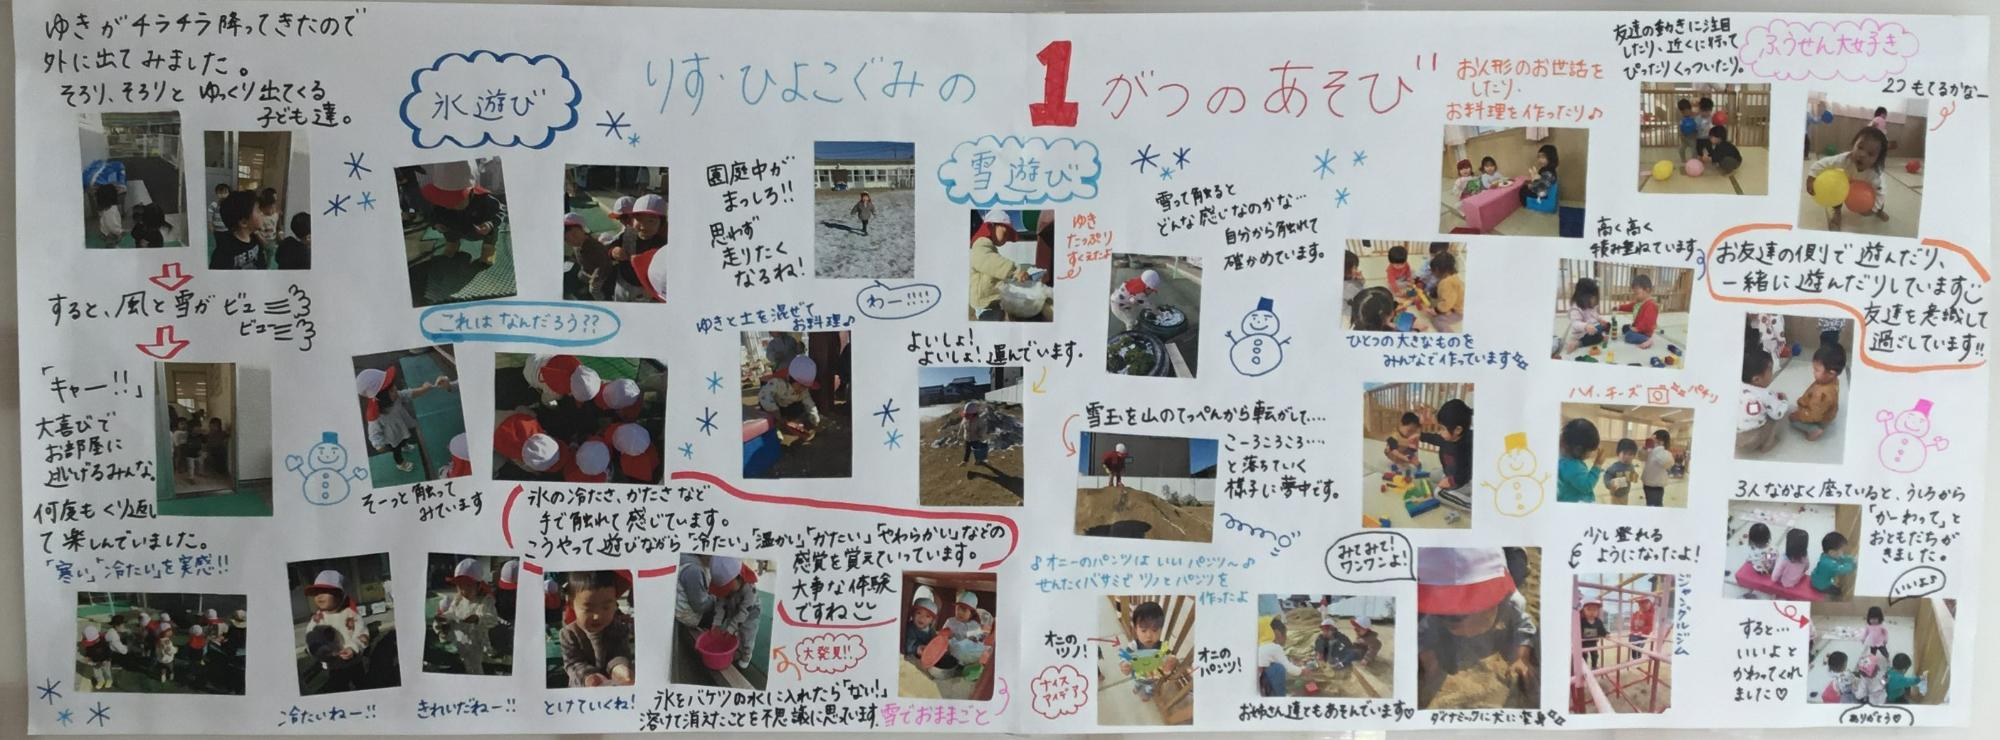 りす・ひよこぐみの 1がつのあそび
ゆきがチラチラ降ってきたので
外に出てみました。
そろり、そろりと ゆっくり出てくる
子ども達。
すると、風と雪が ビュー
ビュー
「キャー!!」
大喜びで
お部屋に
逃げるみんな。
何度もくり返し
て楽しんでいました。
「寒い」「冷たい」を実感!!
氷遊び
これは なんだろう??
そーっと触って
みています
氷の冷たさ、かたさなど
手で触れて感じています。
こうやって遊びながら「冷たい」「温かい」「かたい」「やわらかい」などの
感覚を覚えていっています。
大事な体験
ですね
冷たいねー!!
きれいだねー!!
とけていくね!
大発見!!
氷をバケツの水に入れたら「ない!」
溶けて消えたことを不思議に思っています。
雪遊び
園庭中が
まっしろ!!
思わず
走りたく
なるね!
わー!!!!
ゆき
たっぷり
すくえたよ
雪って触ると
どんな感じなのかな…
自分から触れて
確かめています。
ゆきと土を混ぜて
お料理♪
よいしょ!
よいしょ!運んでいます。
雪玉を山のてっぺんから転がして…
こーろころころ…
と落ちていく
様子に夢中です。
雪でおままごと
♪オニーのパンツは いいパンツ〜♪
せんたくバサミで ツノとパンツを
作ったよ
オニの
ツノ!
オニの
パンツ!
ナイス
アイデア
お姉さん達ともあそんでいます♡
みてみて!
ワンワンよ!
ダイナミックに犬に変身
お人形のお世話を
したり、
お料理を作ったり♪
ひとつの大きなものを
みんなで作っています
高く高く
積み重ねています
ハイ、チーズ パチリ
少し登れる
ようになったよ!
ジャングルジム
友達の動きに注目
したり、近くに行って
ぴったりくっついたり。
ふうせん大好き
2つもてるかなー
お友達の側で遊んだり、
一緒に遊んだりしています
友達を意識して
過ごしています!!
3人なかよく座っていると、うしろから
「かーわって」と
おともだちが
きました。
いいよ♪
すると…
いいよと
かわってくれ
ました♡
ありがとう♡